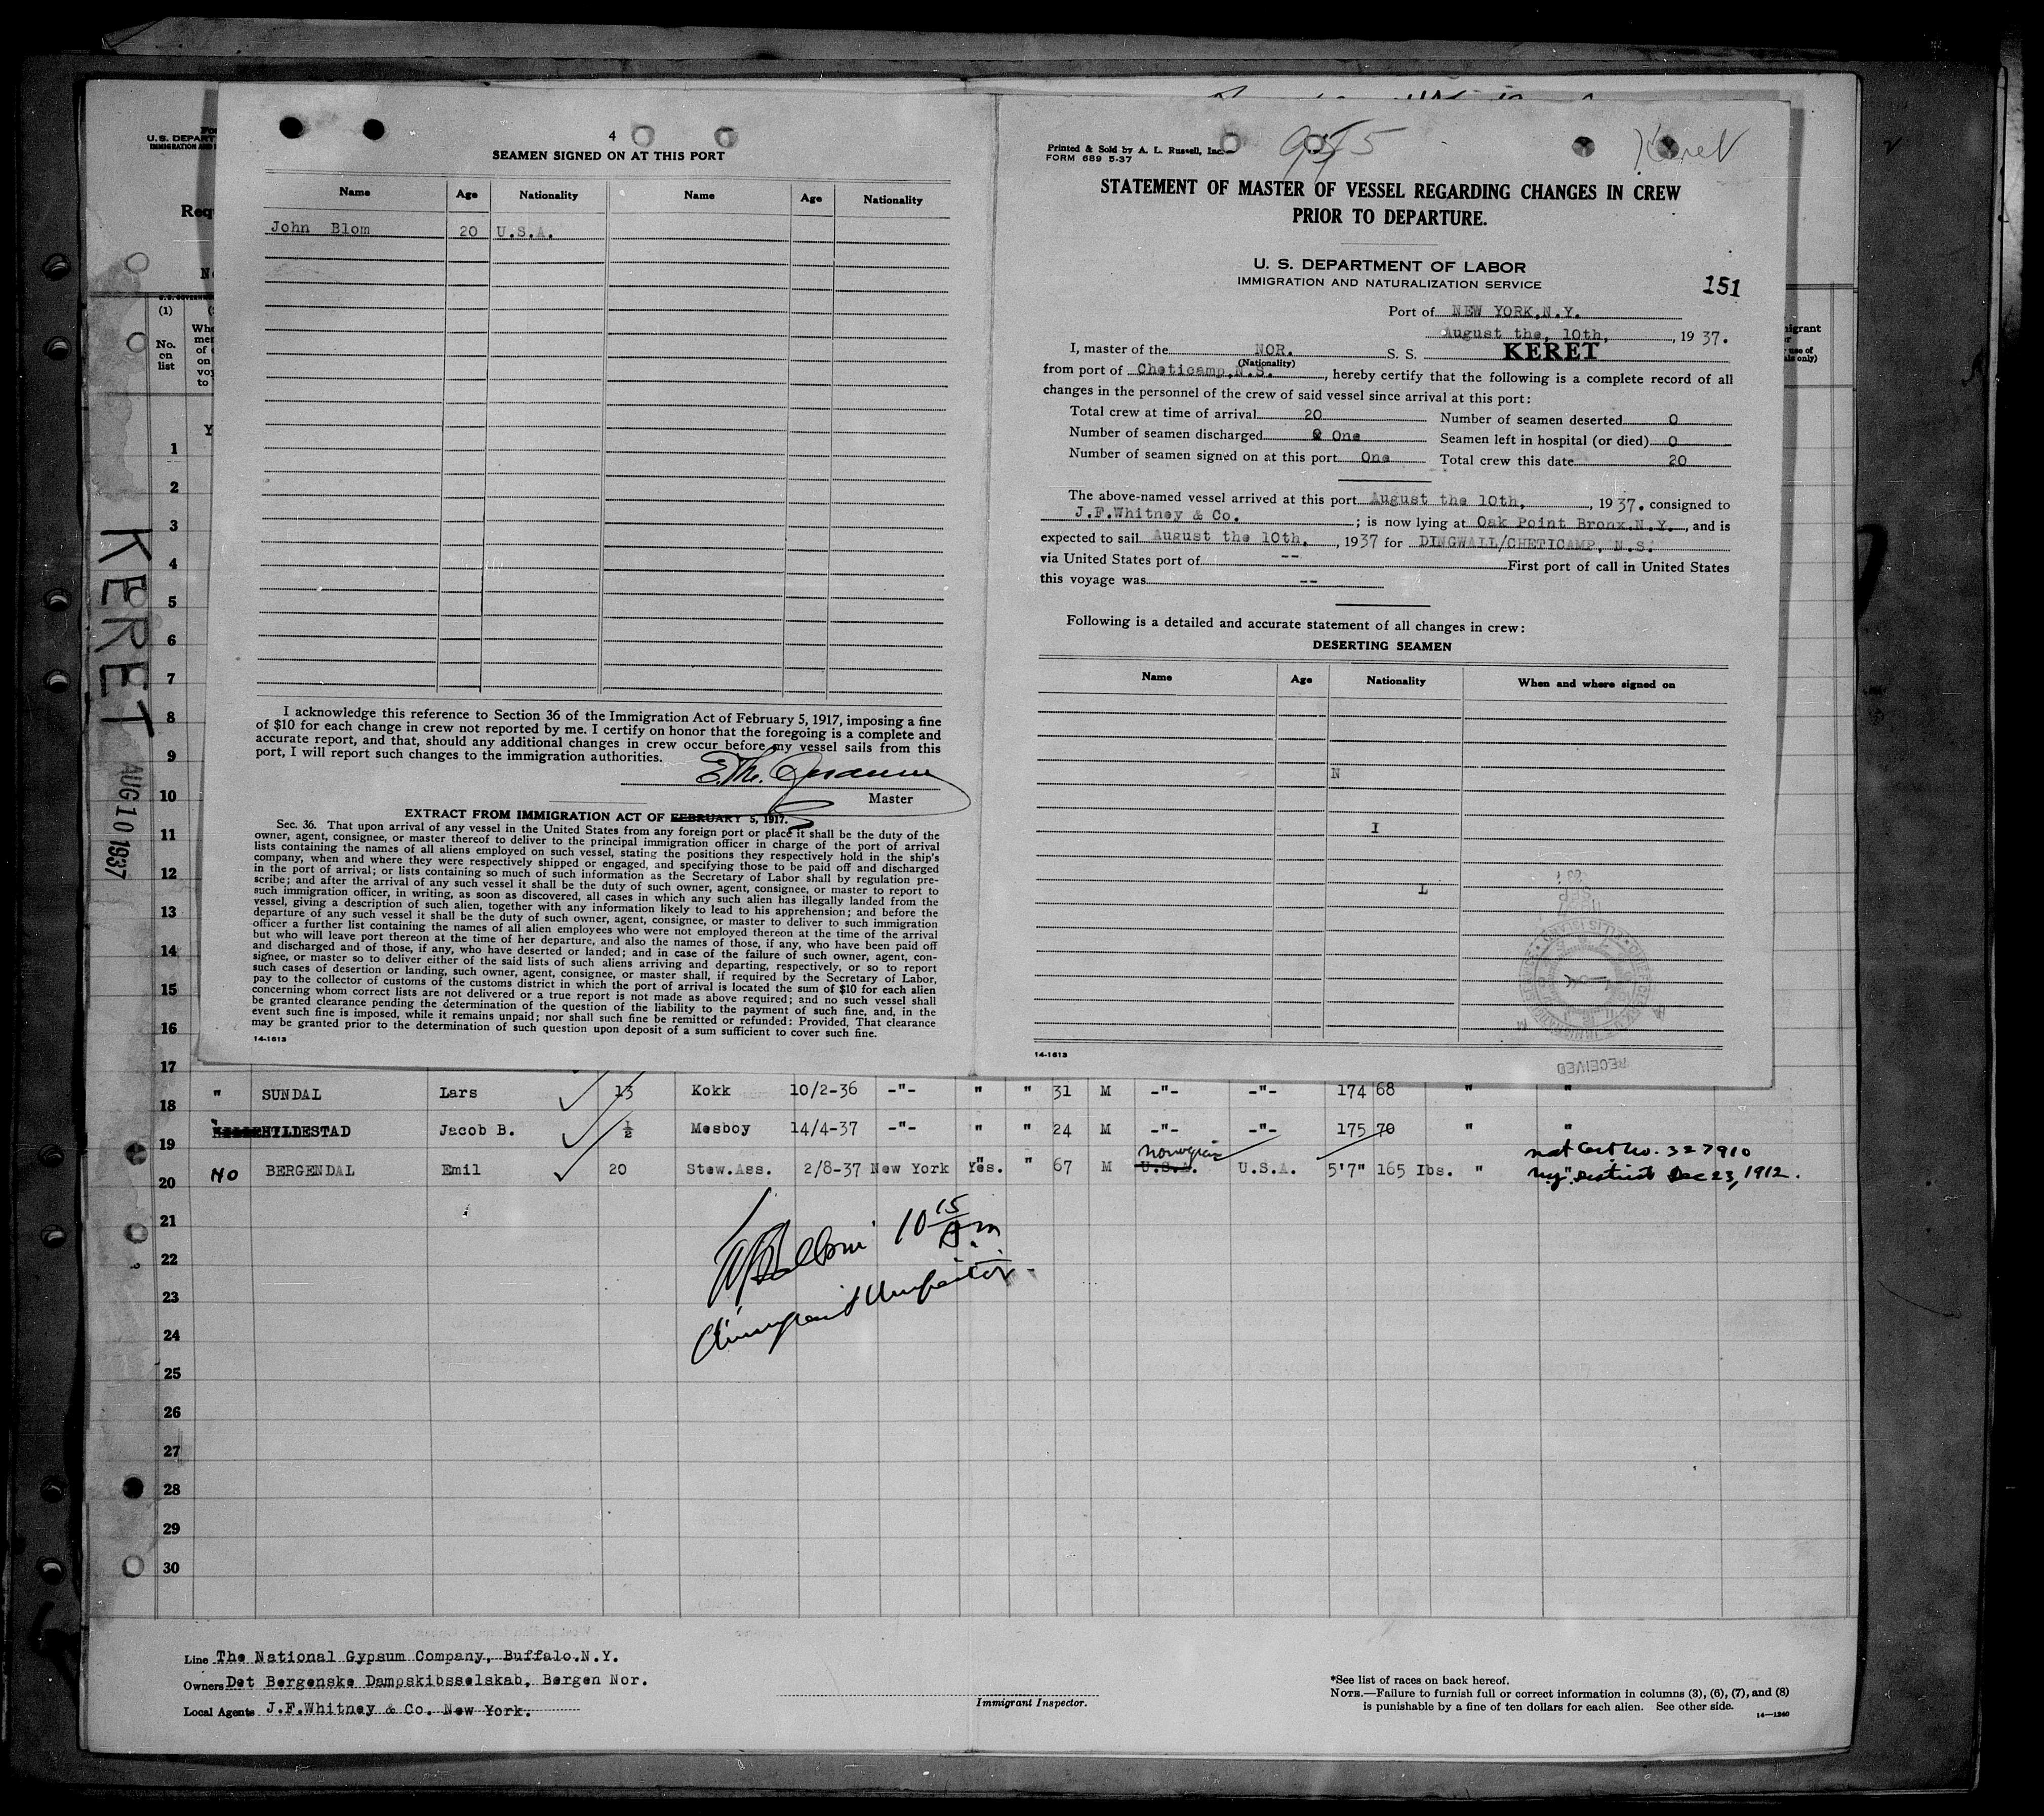 4
SEAMEN SIGNED ON AT THIS PORT
Name Age Nationality Name Age Nationality
John Blom 20 U.S.A.
I acknowledge this reference to Section 36 of the Immigration Act of February 5, 1917, imposing a fine
of $10 for each change in crew not reported by me. I certify on honor that the foregoing is a complete and
accurate report, and that, should any additional changes in crew occur before my vessel sails from this
port, I will report such changes to the immigration authorities.
Master
EXTRACT FROM IMMIGRATION ACT OF FEBRUARY 5, 1917.
Sec. 36. That upon arrival of any vessel in the United States from any foreign port or place it shall be the duty of the
owner, agent, consignee, or master thereof to deliver to the principal immigration officer in charge of the port of arrival
lists containing the names of all aliens employed on such vessel, stating the positions they respectively hold in the ship's
company, when and where they were respectively shipped or engaged, and specifying those to be paid off and discharged
in the port of arrival; or lists containing so much of such information as the Secretary of Labor shall by regulation pre-
scribe; and after the arrival of any such vessel it shall be the duty of such owner, agent, consignee, or master to report to
such immigration officer, in writing, as soon as discovered, all cases in which any such alien has illegally landed from the
vessel, giving a description of such alien, together with any information likely to lead to his apprehension; and before the
departure of any such vessel it shall be the duty of such owner, agent, consignee, or master to deliver to such immigration
officer a further list containing the names of all alien employees who were not employed thereon at the time of the arrival
but who will leave port thereon at the time of her departure, and also the names of those, if any, who have been paid off
and discharged and of those, if any, who have deserted or landed; and in case of the failure of such owner, agent, con-
signee, or master so to deliver either of the said lists of such aliens arriving and departing, respectively, or so to report
such cases of desertion or landing, such owner, agent, consignee, or master shall, if required by the Secretary of Labor,
pay to the collector of customs of the customs district in which the port of arrival is located the sum of $10 for each alien
concerning whom correct lists are not delivered or a true report is not made as above required; and no such vessel shall
be granted clearance pending the determination of the question of the liability to the payment of such fine, and, in the
event such fine is imposed, while it remains unpaid; nor shall such fine be remitted or refunded: Provided, That clearance
may be granted prior to the determination of such question upon deposit of a sum sufficient to cover such fine.
14-1613
Printed & Sold by A. L. Russell, Inc.
FORM 689 5-37
Keret
STATEMENT OF MASTER OF VESSEL REGARDING CHANGES IN CREW
PRIOR TO DEPARTURE.
U. S. DEPARTMENT OF LABOR
IMMIGRATION AND NATURALIZATION SERVICE
151
Port of NEW YORK,N.Y.
August the, 10th, , 19 37.
I, master of the NOR. S. S. KERET
(Nationality)
from port of Cheticamp,N.S. , hereby certify that the following is a complete record of all
changes in the personnel of the crew of said vessel since arrival at this port:
Total crew at time of arrival 20 Number of seamen deserted 0
Number of seamen discharged One Seamen left in hospital (or died) 0
Number of seamen signed on at this port One Total crew this date 20
The above-named vessel arrived at this port August the 10th, , 19 37. consigned to
J.F.Whitney & Co. ; is now lying at Oak Point Bronx.N.Y. , and is
expected to sail August the 10th. , 19 37 for DINGWALL/CHETICAMP, N.S.
via United States port of -- First port of call in United States
this voyage was --
Following is a detailed and accurate statement of all changes in crew:
DESERTING SEAMEN
Name Age Nationality When and where signed on
N
I
L
14-1613
RECEIVED
U.S. DEPART
(1)
No.
on
list
KERET
AUG 10 1937
1
2
3
4
5
6
7
8
9
10
11
12
13
14
15
16
17
" SUNDAL Lars 13 Kokk 10/2-36 -"- " " 31 M -"- -"- 174 68 " "
18
HYLDESTAD Jacob B. ½ Mesboy 14/4-37 -"- " " 24 M -"- -"- 175 70 " "
19
NO BERGENDAL Emil 20 Stew.Ass. 2/8-37 New York Yes. " 67 M U.S.A. Norwegian U.S.A. 5'7" 165 Ibs. " nat Cert No. 327910
N.Y. District Dec 23, 1912.
20
21
22
23
24
25
26
27
28
29
30
10 15 A.m
Immigrant Inspector
Line The National Gypsum Company, Buffalo.N.Y.
Owners Det Bergenske Dampskibsselskab, Bergen Nor.
Local Agents J.F.Whitney & Co. New York.
Immigrant Inspector.
*See list of races on back hereof.
NOTE.—Failure to furnish full or correct information in columns (3), (6), (7), and (8)
is punishable by a fine of ten dollars for each alien. See other side.
14—1240